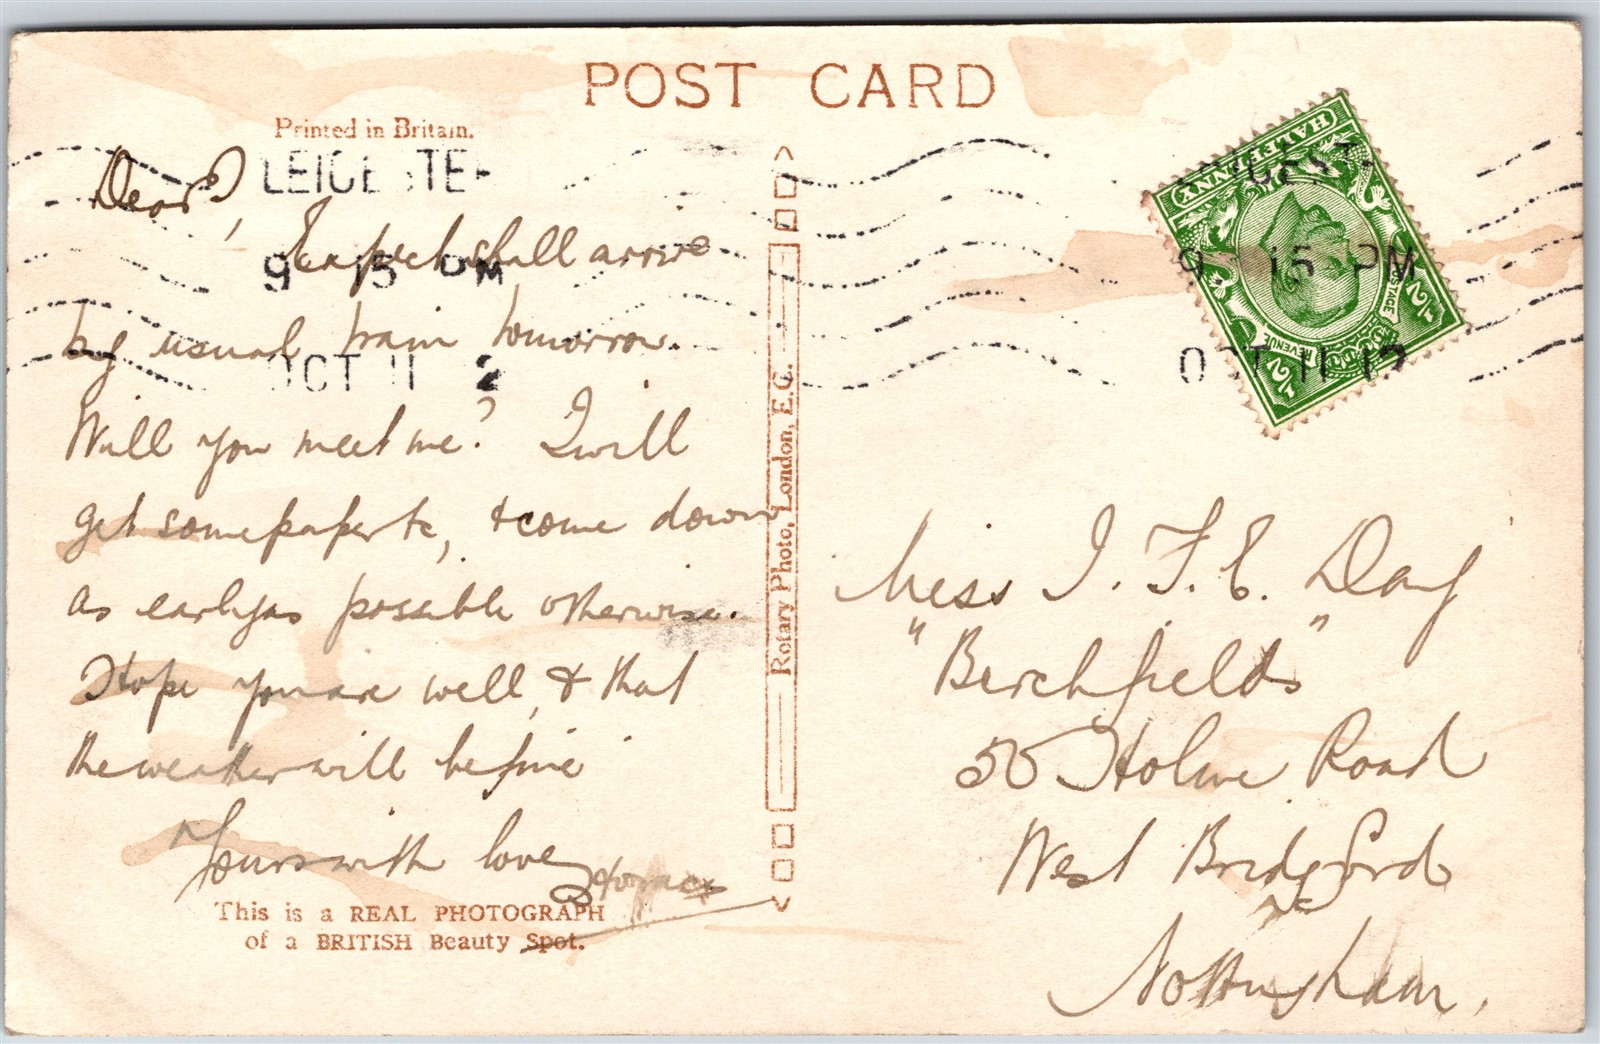 POST CARD
Printed in Britain.
LEICE STE
9 15 PM
OCT 11 2
Dear J,
Expect shall arrive
by usual train tomorrow.
Will you meet me? I will
get some papers &c, & come down
as early as possible otherwise.
Hope you are well, & that
the weather will be fine
Yours with love
Horace
This is a REAL PHOTOGRAPH
of a BRITISH Beauty Spot.
Rotary Photo, London, E.C.
HALFPENNY
POSTAGE
REVENUE
1/2
1/2
9 15 PM
OCT 11 12
Miss I. F. E. Day
"Berchfields"
50 Holme Road
West Bridgford
Nottingham.